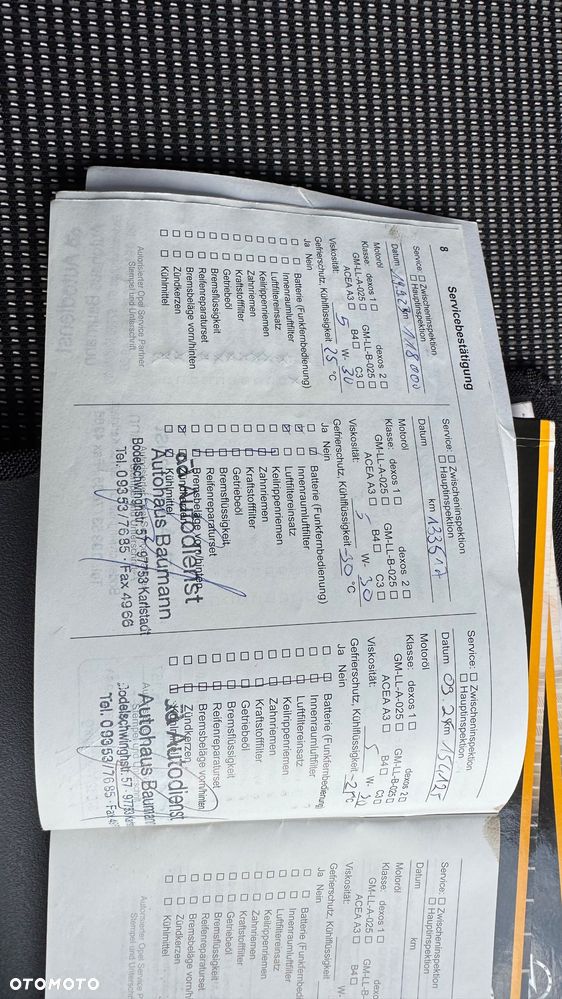 8
Servicebestätigung
Service: ☐ Zwischeninspektion
☐ Hauptinspektion
Datum km 118000
Motoröl
Klasse: dexos 1 ☐ dexos 2 ☐
GM-LL-A-025 ☐ GM-LL-B-025 ☐
ACEA A3 ☐ B4 ☐ C3 ☐
Viskosität: 5 W- 30
Gefrierschutz, Kühlflüssigkeit 25 °C
Ja Nein
☐ ☐ Batterie (Funkfernbedienung)
☐ ☐ Innenraumluftfilter
☐ ☐ Luftfiltereinsatz
☐ ☐ Keilrippenriemen
☐ ☐ Zahnriemen
☐ ☐ Kraftstofffilter
☐ ☐ Getriebeöl
☐ ☐ Bremsflüssigkeit
☐ ☐ Reifenreparaturset
☐ ☐ Bremsbeläge vorn/hinten
☐ ☐ Zündkerzen
☐ ☐ Kühlmittel
Autorisierter Opel Service Partner
Stempel und Unterschrift
Service: ☐ Zwischeninspektion
☐ Hauptinspektion
Datum km 133617
Motoröl
Klasse: dexos 1 ☐ dexos 2 ☐
GM-LL-A-025 ☐ GM-LL-B-025 ☐
ACEA A3 ☐ B4 ☐ C3 ☐
Viskosität: 5 W- 30
Gefrierschutz, Kühlflüssigkeit -30 °C
Ja Nein
Batterie (Funkfernbedienung)
Innenraumluftfilter
Luftfiltereinsatz
Keilrippenriemen
Zahnriemen
Kraftstofffilter
Getriebeöl
Bremsflüssigkeit
Reifenreparaturset
Bremsbeläge vorn/hinten
Kühlmittel
ad-Autodienst
Autohaus Baumann
Bodelschwinghstr. 57 · 97753 Karlstadt
Tel. 09353/7685 · Fax 4966
Service: ☐ Zwischeninspektion
☐ Hauptinspektion
Datum km
Motoröl
Klasse: dexos 1 ☐ dexos 2 ☐
GM-LL-A-025 ☐ GM-LL-B-025 ☐
ACEA A3 ☐ B4 ☐ C3 ☐
Viskosität: 5 W- 30
Gefrierschutz, Kühlflüssigkeit °C
Ja Nein
Batterie (Funkfernbedienung)
Innenraumluftfilter
Luftfiltereinsatz
Keilrippenriemen
Zahnriemen
Kraftstofffilter
Getriebeöl
Bremsflüssigkeit
Reifenreparaturset
Bremsbeläge vorn/hinten
Zündkerzen
ad-Autodienst
Autohaus Baumann
Bodelschwinghstr. 57 · 97753
Tel. 09353/7685 · Fax
Service: ☐ Zwischeninspektion
☐ Hauptinspektion
Datum km
Motoröl
Klasse: dexos 1 ☐
GM-LL-A-025 ☐ GM-LL-B
ACEA A3 ☐ B4 ☐
Viskosität: W-
Gefrierschutz, Kühlflüssigkeit
Ja Nein
☐ ☐ Batterie (Funkfernbedienung)
☐ ☐ Innenraumluftfilter
☐ ☐ Luftfiltereinsatz
☐ ☐ Keilrippenriemen
☐ ☐ Zahnriemen
☐ ☐ Kraftstofffilter
☐ ☐ Getriebeöl
☐ ☐ Bremsflüssigkeit
☐ ☐ Reifenreparaturset
☐ ☐ Bremsbeläge vorn/hinten
☐ ☐ Zündkerzen
☐ ☐ Kühlmittel
Autorisierter Opel Service
Stempel und Unterschrift
OTOMOTO